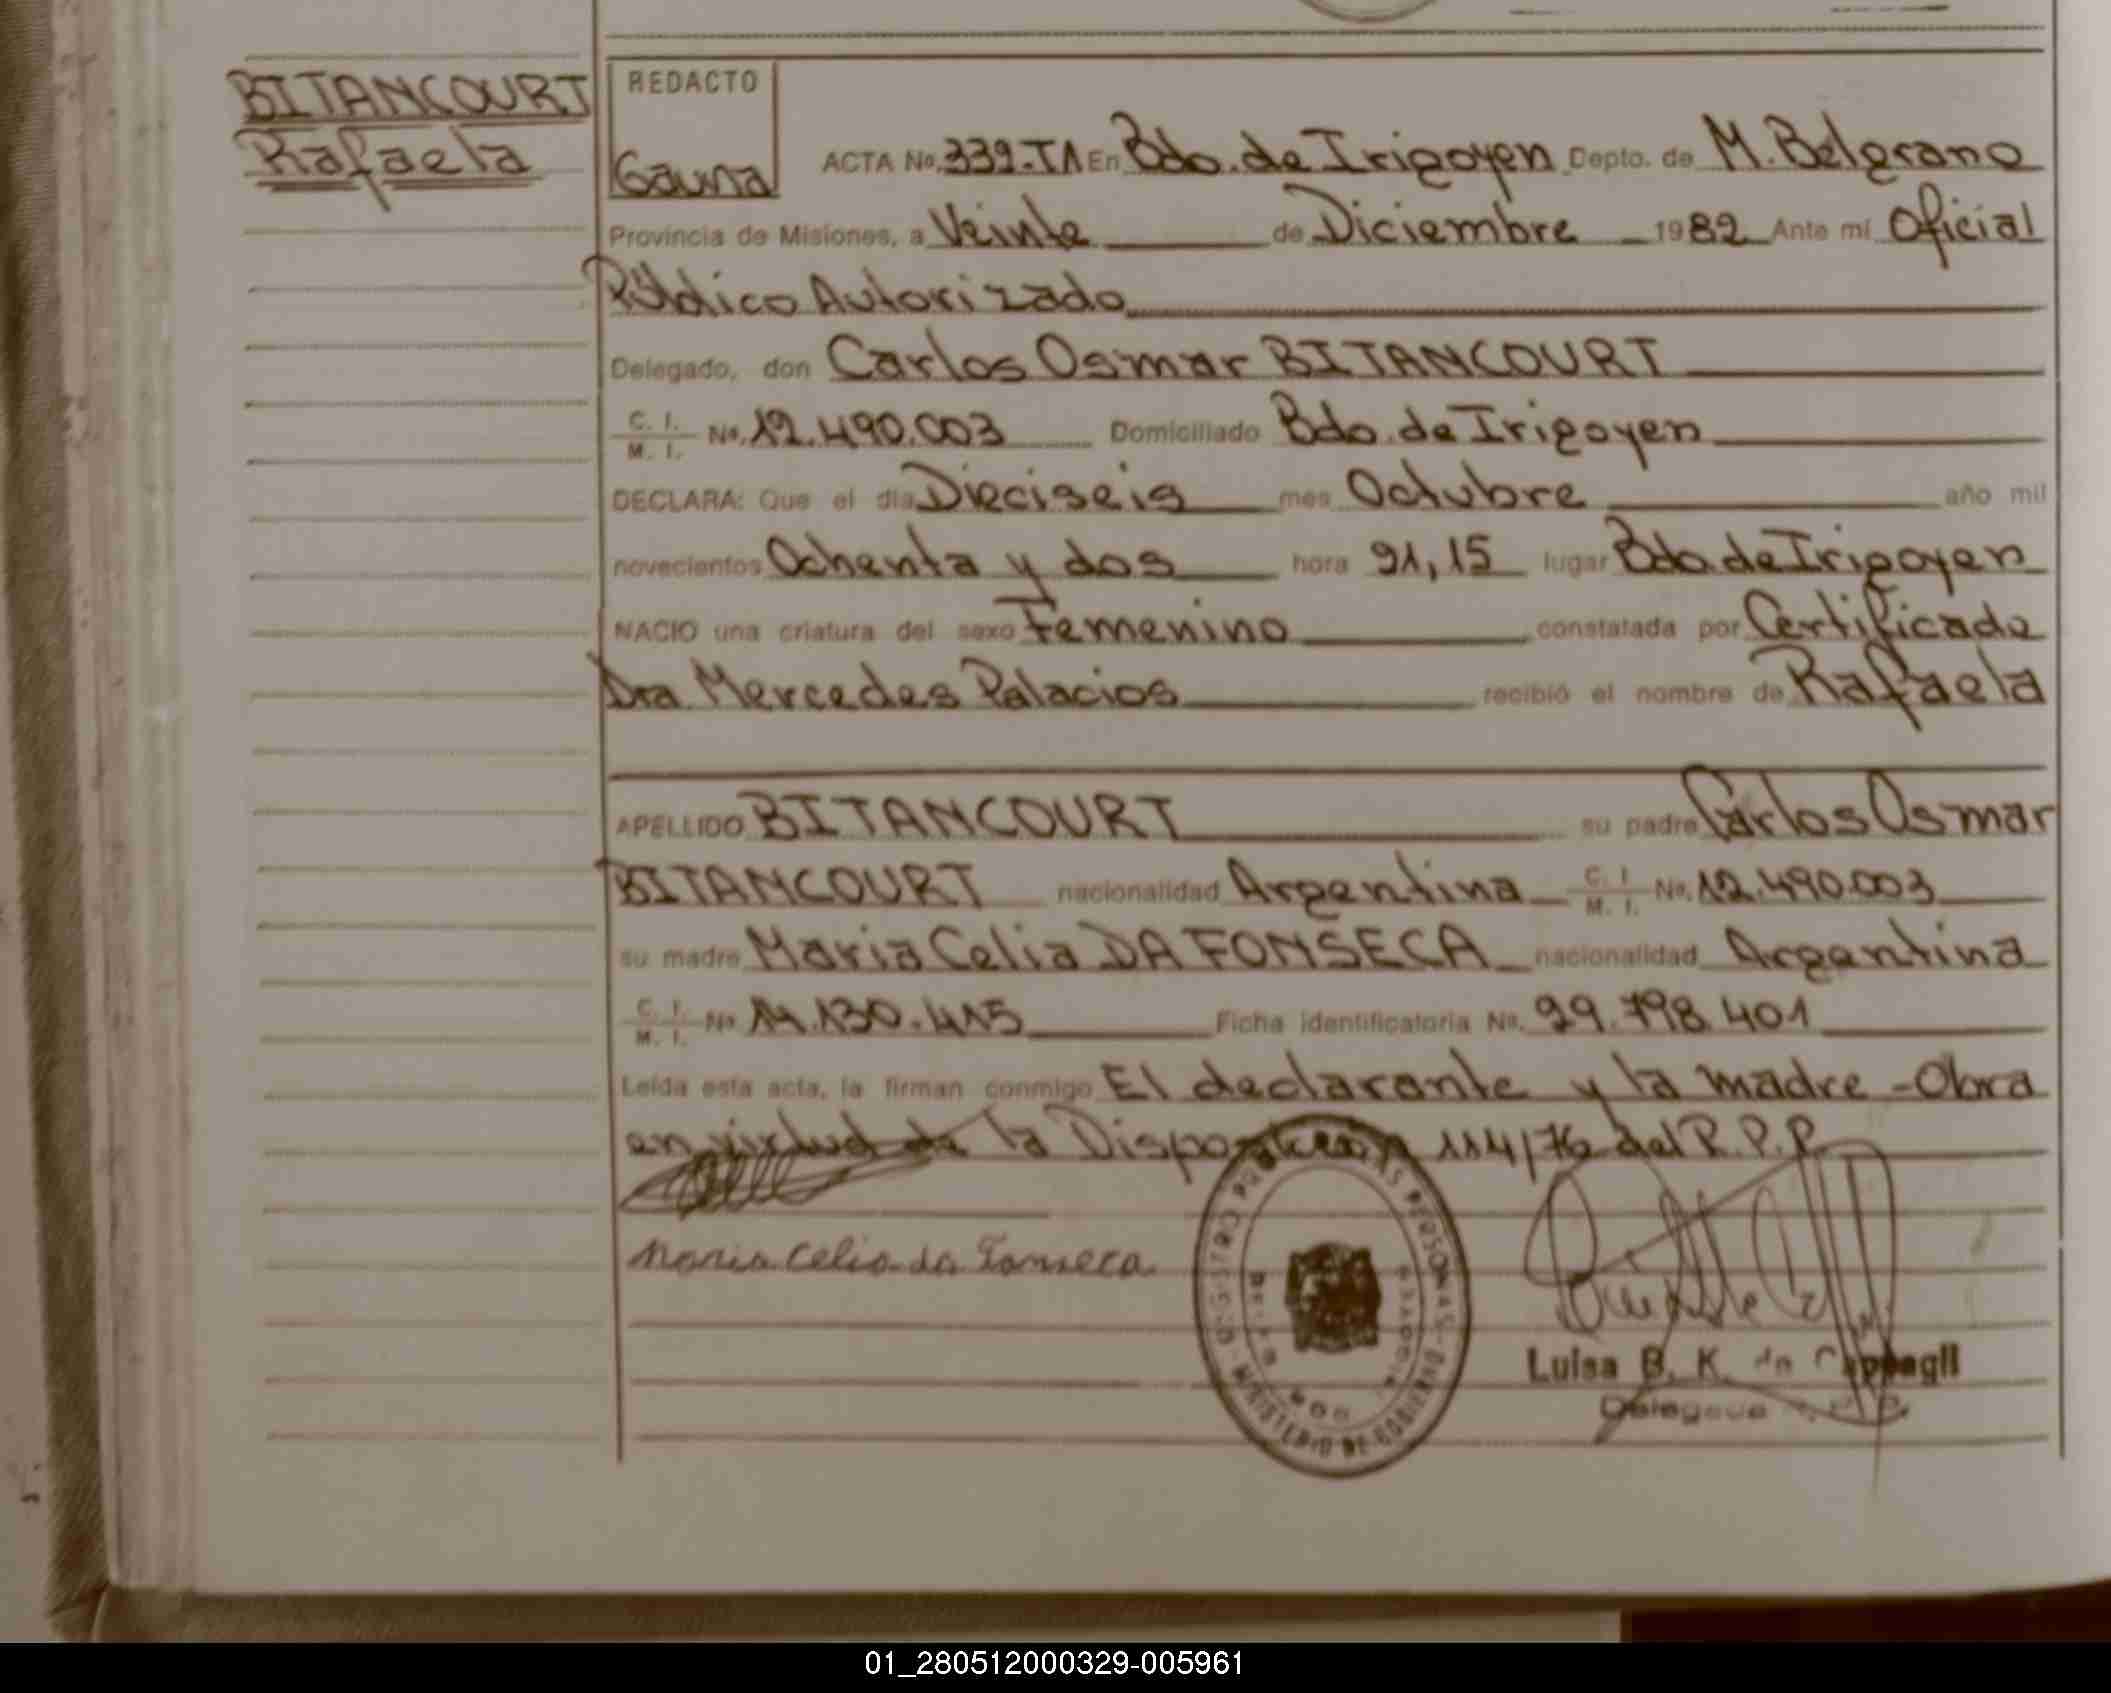 BITANCOURT
Rafaela
REDACTO
Gauna
ACTA No. 339-TA En Bdo. de Irigoyen Depto. de M. Belgrano
Provincia de Misiones, a Veinte de Diciembre 1982 Ante mí Oficial
Público Autorizado
Delegado, don Carlos Osmar BITANCOURT
C. I. / M. I. No. 12.490.003 Domiciliado Bdo. de Irigoyen
DECLARA: Que el día Dieciseis mes Octubre año mil
novecientos Ochenta y dos hora 21,15 lugar Bdo. de Irigoyen
NACIO una criatura del sexo Femenino constatada por Certificado
Dra Mercedes Palacios recibió el nombre de Rafaela
APELLIDO BITANCOURT su padre Carlos Osmar
BITANCOURT nacionalidad Argentina C. I. / M. I. No. 12.490.003
su madre Maria Celia DA FONSECA nacionalidad Argentina
C. I. / M. I. No. 14.130.415 Ficha identificatoria No. 29.798.401
Leída esta acta, la firman conmigo El declarante y la madre - Obra
en virtud de la Disposicion 114/76 del R.P.P.
Maria Celia da Fonseca
REGISTRO PERSONAS - MINISTERIO DE GOBIERNO
Luisa B. K. de
Delegada
01_280512000329-005961